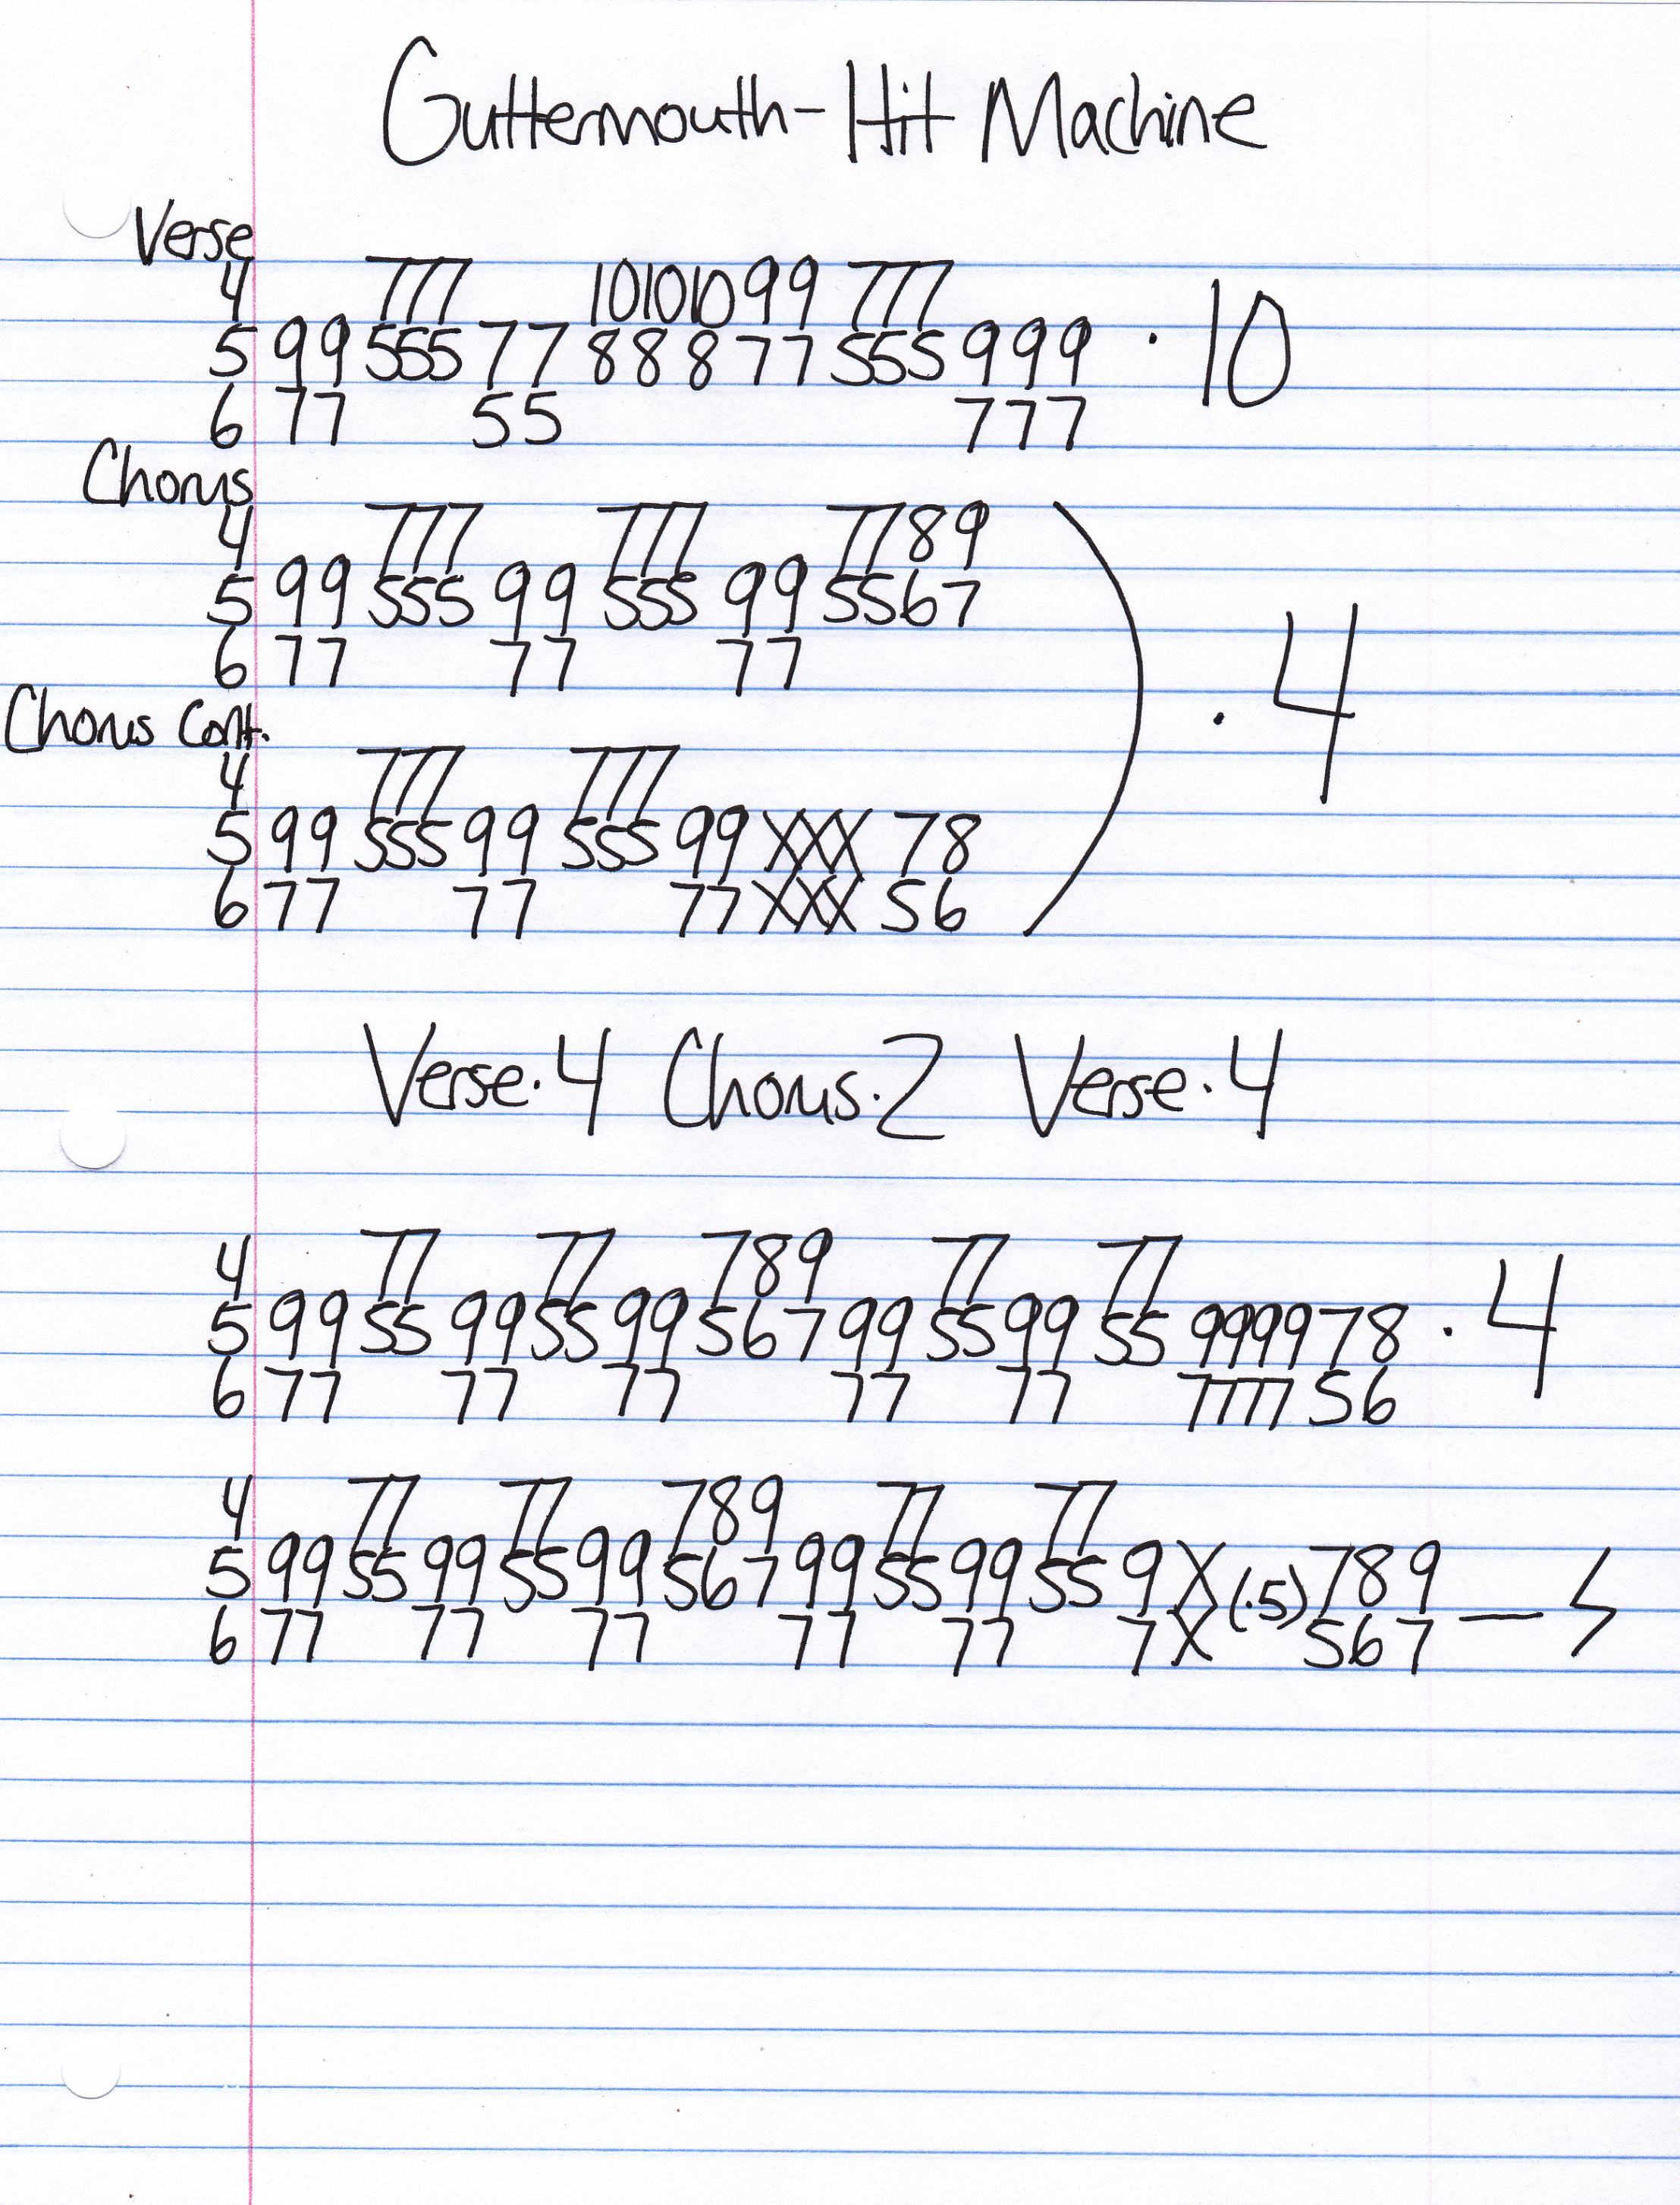 Guttermouth - Hit Machine
Verse
4 777 10101099 777
5 99 555 77 888 77 555 999 · 10
6 77 55 777
Chorus
4 777 777 7789
5 99 555 99 555 99 5567
6 77 77 77
· 4
Chorus Cont.
4 777 777
5 99 555 99 555 99 XXX 78
6 77 77 77 XXX 56
Verse·4 Chorus·2 Verse·4
4 77 77 789 77 77
5 99 55 99 55 99 567 99 55 99 55 9999 78 · 4
6 77 77 77 77 77 7777 56
4 77 77 789 77 77
5 99 55 99 55 99 567 99 55 99 55 9 X (.5) 789
6 77 77 77 77 77 7 X 567